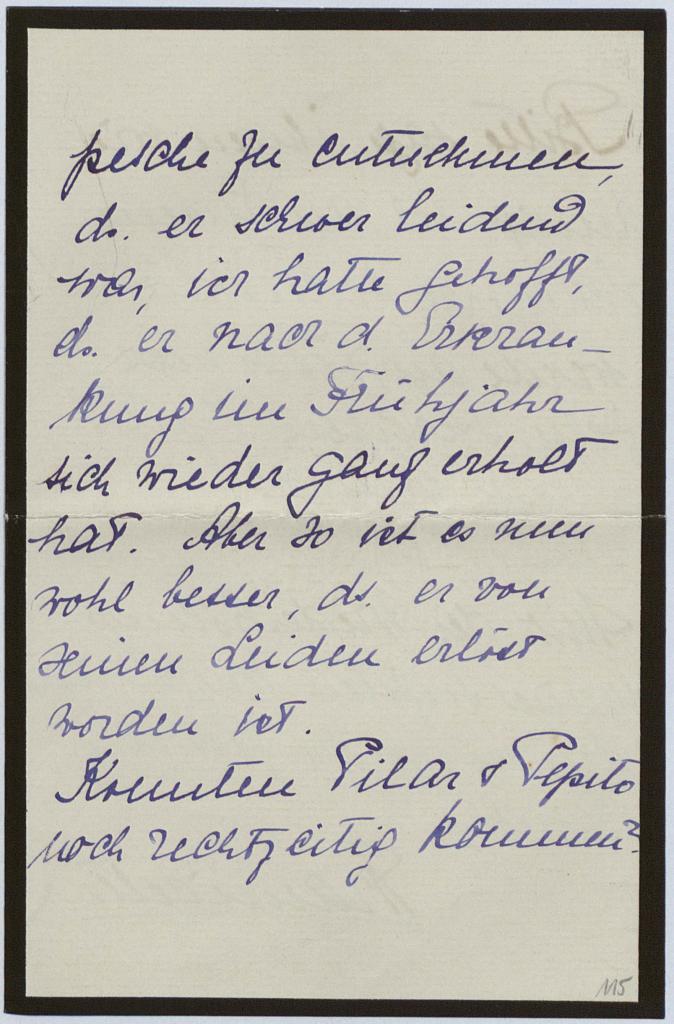 pesche zu entnehmen,
ds. er schwer leidend
war, ich hatte gehofft,
ds. er nach d. Erkran-
kung im Frühjahr
sich wieder ganz erholt
hat. Aber so ist es nun
wohl besser, ds. er von
seinen Leiden erlöst
worden ist.
Konnten Pilar & Pepito
noch rechtzeitig kommen?
115